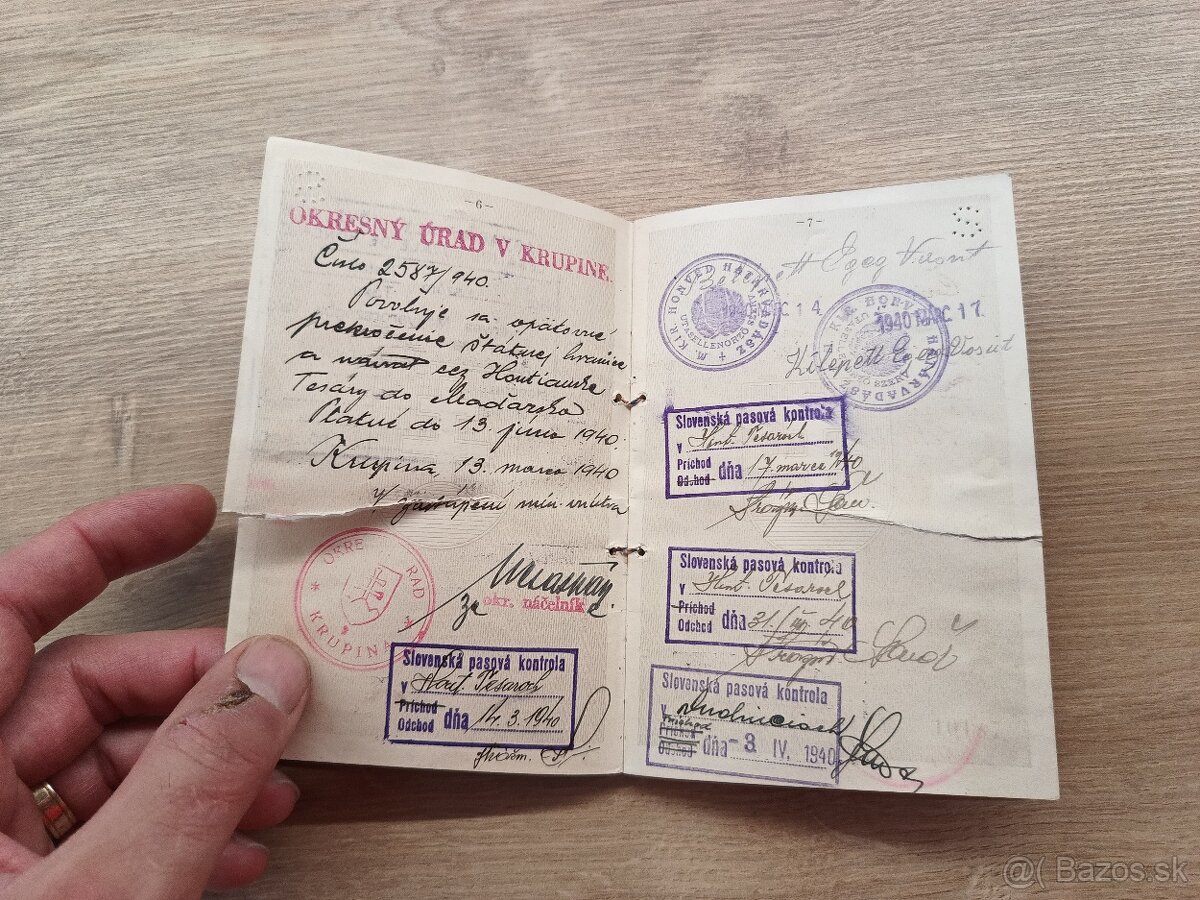 -6-
OKRESNÝ ÚRAD V KRUPINE.
Číslo 2587/940.
Povoľuje sa opätovné
prekročenie štátnej hranice
a návrat cez Hontianske
Tesáry do Maďarska
Platné do 13. júna 1940.
Krupina 13. marca 1940
V zastúpení min. vnútra
za okr. náčelník
OKRE RAD
* KRUPINA *
Slovenská pasová kontrola
v Hont. Tesaroch
Príchod
Odchod dňa 14.3.1940
-7-
M. KIR HONVÉD HATÁRVADÁSZ
UTASELLENŐRZŐ
1940 MÁRC 14
Egeg Visnt
1940 MÁRC 17
Kilépett Egeg
Slovenská pasová kontrola
v Hont. Tesaroch
Príchod
Odchod dňa 17. marca 1940
Slovenská pasová kontrola
v Hont. Tesaroch
Príchod
Odchod dňa 31./III. 40
Slovenská pasová kontrola
v
Príchod
Odchod dňa -3 IV. 1940
@( Bazos.sk